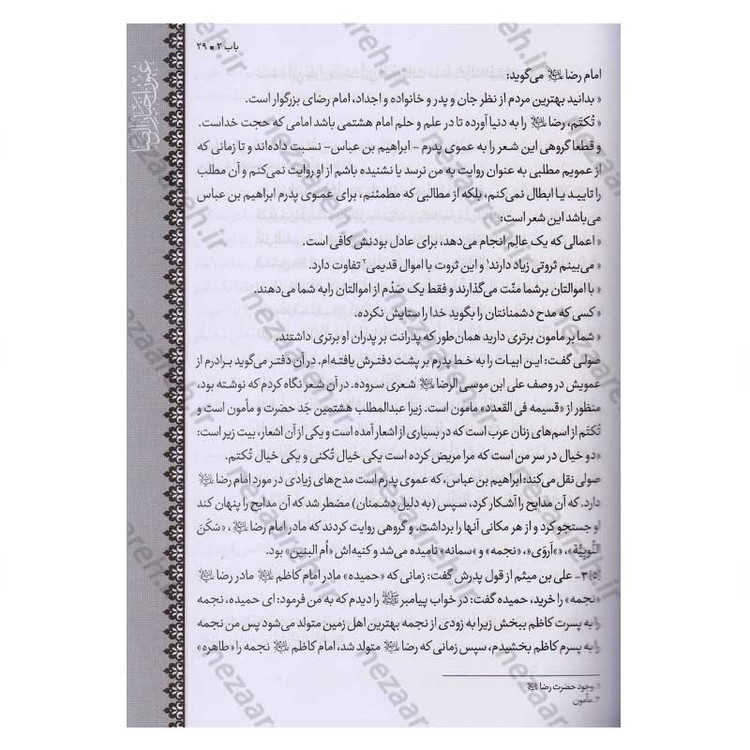 باب ۲ ■ ۲۹
عیون اخبار الرضا
امام رضا علیه السلام می‌گوید:
« بدانید بهترین مردم از نظر جان و پدر و خانواده و اجداد، امام رضای بزرگوار است.
« تُکتَم، رضا علیه السلام را به دنیا آورده تا در علم و حلم امام هشتمی باشد امامی که حجت خداست.
و قطعا گروهی این شعر را به عموی پدرم - ابراهیم بن عباس- نسبت داده‌اند و تا زمانی که
از عمویم مطلبی به عنوان روایت به من نرسد یا نشنیده باشم از او روایت نمی‌کنم و آن مطلب
را تایید یا ابطال نمی‌کنم، بلکه از مطالبی که مطمئنم، برای عموی پدرم ابراهیم بن عباس
می‌باشد این شعر است:
« اعمالی که یک عالم انجام می‌دهد، برای عادل بودنش کافی است.
« می‌بینم ثروتی زیاد دارند۱ و این ثروت با اموال قدیمی۲ تفاوت دارد.
« با اموالتان برشما منّت می‌گذارند و فقط یک صدُم از اموالتان را به شما می‌دهند.
« کسی که مدح دشمنانتان را بگوید خدا را ستایش نکرده.
« شما بر مامون برتری دارید همان طور که پدرانت بر پدران او برتری داشتند.
صولی گفت: این ابیات را به خط پدرم بر پشت دفترش یافته‌ام. در آن دفتر می‌گوید برادرم از
عمویش در وصف علی ابن موسی الرضا علیه السلام شعری سروده. در آن شعر نگاه کردم که نوشته بود،
منظور از «قسیمه فی القعدد» مامون است. زیرا عبدالمطلب هشتمین جَد حضرت و مأمون است و
تُکتَم از اسم‌های زنان عرب است که در بسیاری از اشعار آمده است و یکی از آن اشعار، بیت زیر است:
«دو خیال در سر من است که مرا مریض کرده است یکی خیال تُکنی و یکی خیال تُکتم.
صولی نقل می‌کند: ابراهیم بن عباس، که عموی پدرم است مدح‌های زیادی در مورد امام رضا علیه السلام
دارد. که آن مدایح را آشکار کرد، سپس (به دلیل دشمنان) مضطر شد که آن مدایح را پنهان کند
او جستجو کرد و از هر مکانی آنها را برداشت. و گروهی روایت کردند که مادر امام رضا علیه السلام ، «سَکَن
النُّوبِیَّة»، «اَروَی»، «نجمه» و «سمانه» نامیده می‌شد و کنیه‌اش «اُم البنین» بود.
[۵] ۳- علی بن میثم از قول پدرش گفت: زمانی که «حمیده» مادر امام کاظم علیه السلام مادر رضا علیه السلام
«نجمه» را خرید، حمیده گفت: در خواب پیامبر ﷺ را دیدم که به من فرمود: ای حمیده، نجمه
را به پسرت کاظم ببخش زیرا به زودی از نجمه بهترین اهل زمین متولد می‌شود پس من نجمه
را به پسرم کاظم بخشیدم، سپس زمانی که رضا علیه السلام متولد شد، امام کاظم علیه السلام نجمه را «طاهره»
۱. وجود حضرت رضا علیه السلام
۲. مأمون
nezaareh.ir